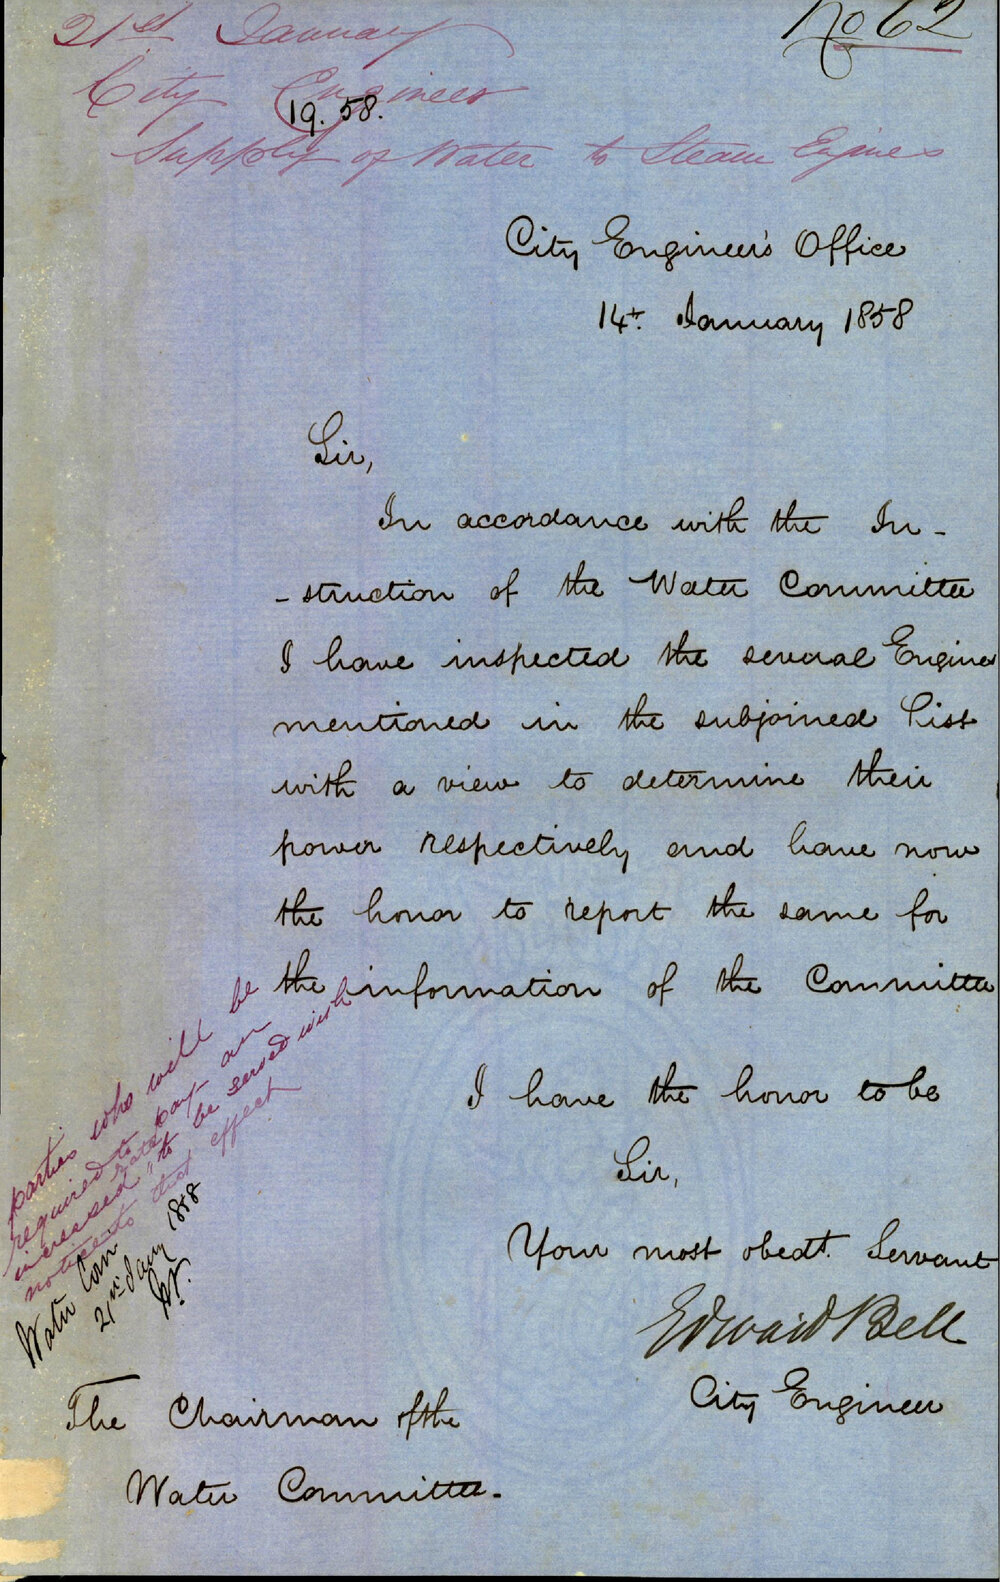 No 62
21st January
City Engineer
19. 58.
Supply of Water to Steam Engines
City Engineer's Office
14th January 1858
Sir,
In accordance with the In-
-struction of the Water Committee
I have inspected the several Engines
mentioned in the subjoined list
with a view to determine their
power respectively and have now
the honor to report the same for
the information of the Committee
I have the honor to be
Sir,
Your most obedt. Servant
Edward Bell
City Engineer
The Chairman of the
Water Committee.
parties who will be
required to pay an
increased rate to be served with
notice to that effect
Water Com
21st Jany 1858